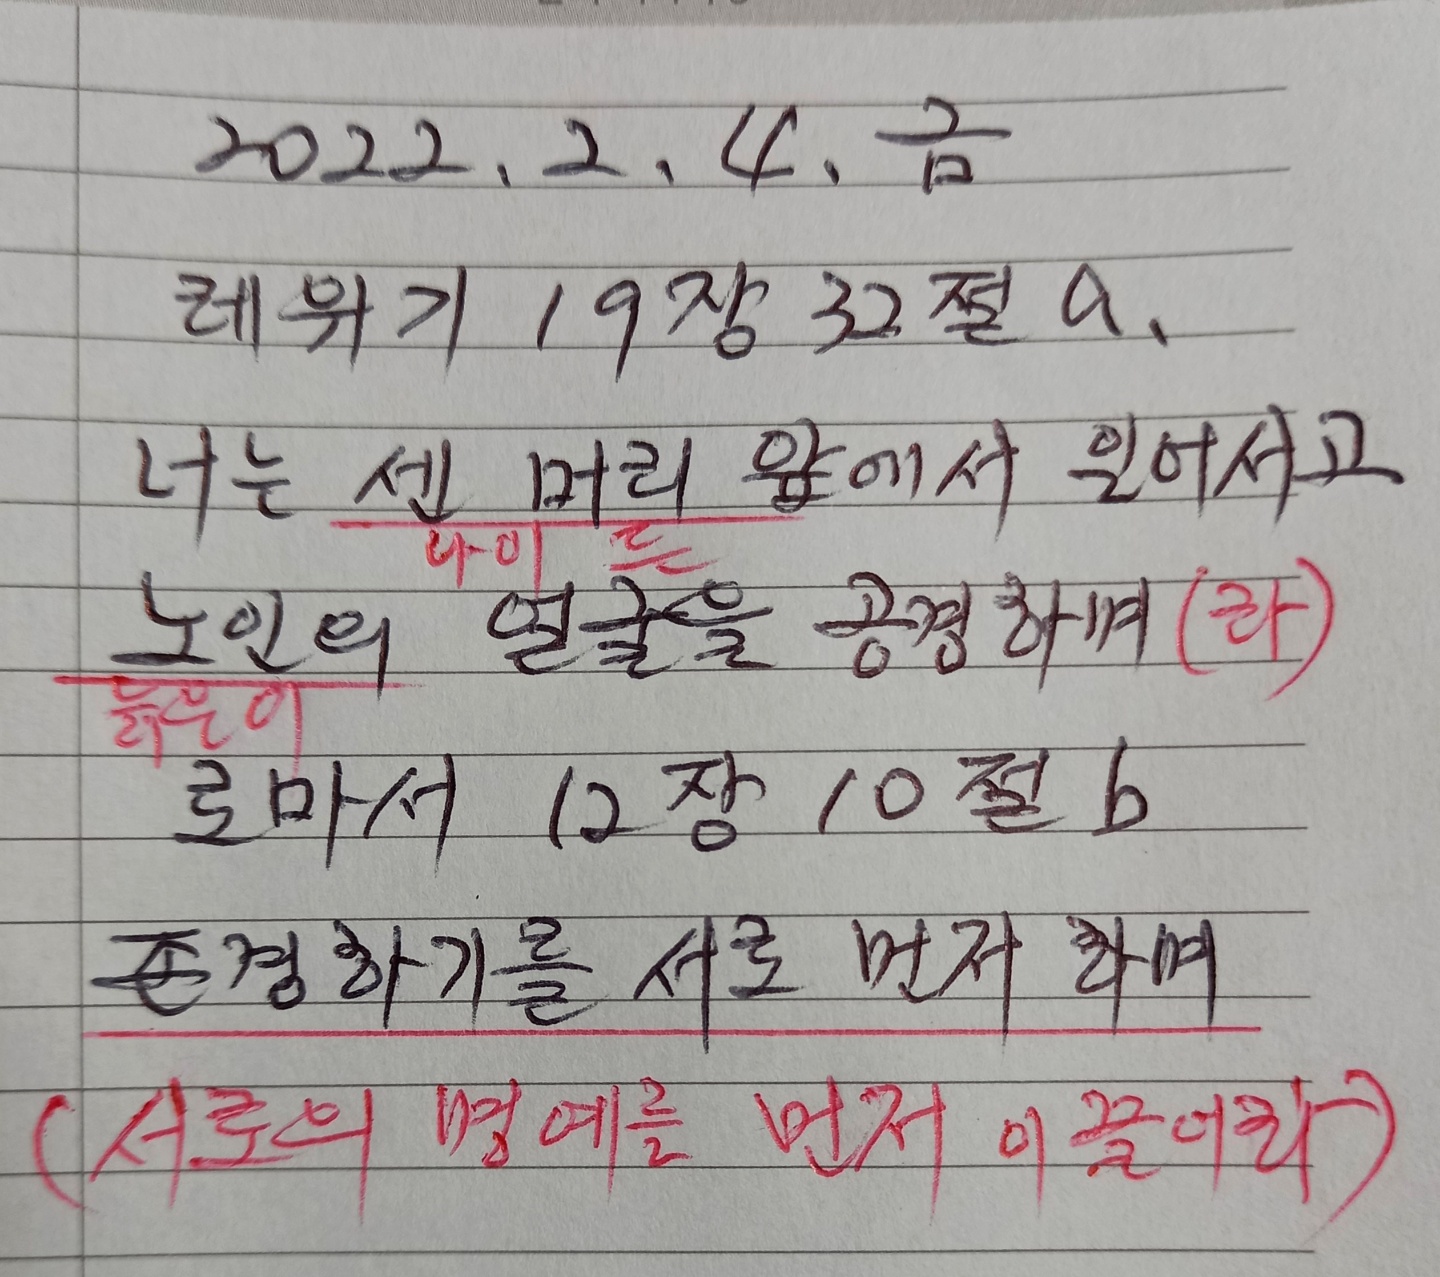 2022. 2. 4. 금
레위기 19장 32절 a.
너는 센 머리 앞에서 일어서고
나이 든
노인의 얼굴을 공경하며 (라)
늙은이
로마서 12장 10절 b
존경하기를 서로 먼저 하며
(서로의 명예를 먼저 이끌어라)